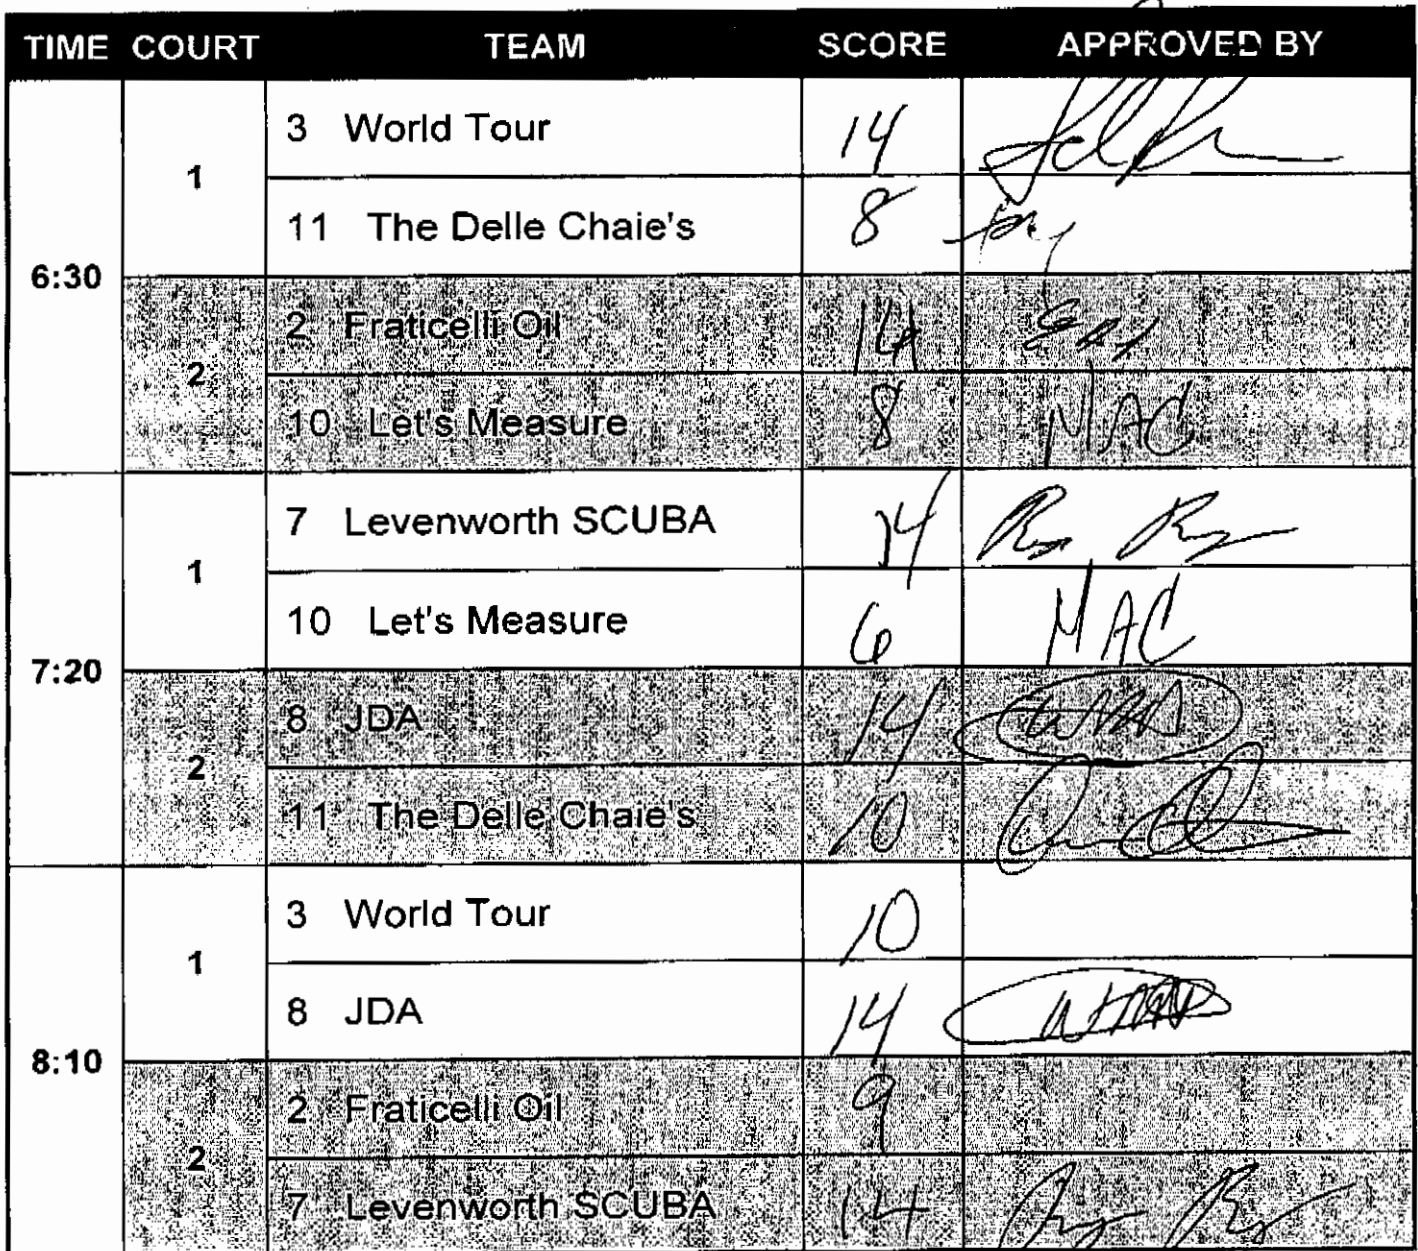 TIME COURT TEAM SCORE APPROVED BY
3 World Tour 14
1
11 The Delle Chaie's 8
6:30
2 Fraticelli Oil 14
2
10 Let's Measure 8 MAC
7 Levenworth SCUBA 14
1
10 Let's Measure 6 MAC
7:20
8 JDA 14
2
11 The Delle Chaie's 10
3 World Tour 10
1
8 JDA 14
8:10
2 Fraticelli Oil 9
2
7 Levenworth SCUBA 14